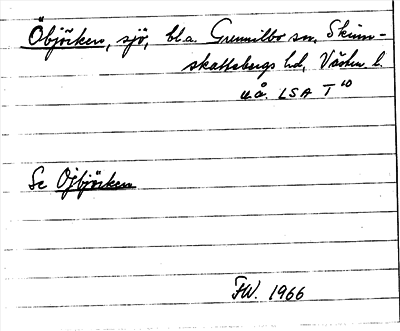 Öbjörken, sjö, bl.a. Gunnilbo sn, Skinn-
skattebergs hd, Västm. l.
u.å. LSA T 10
Se Ojbjörken
FW. 1966